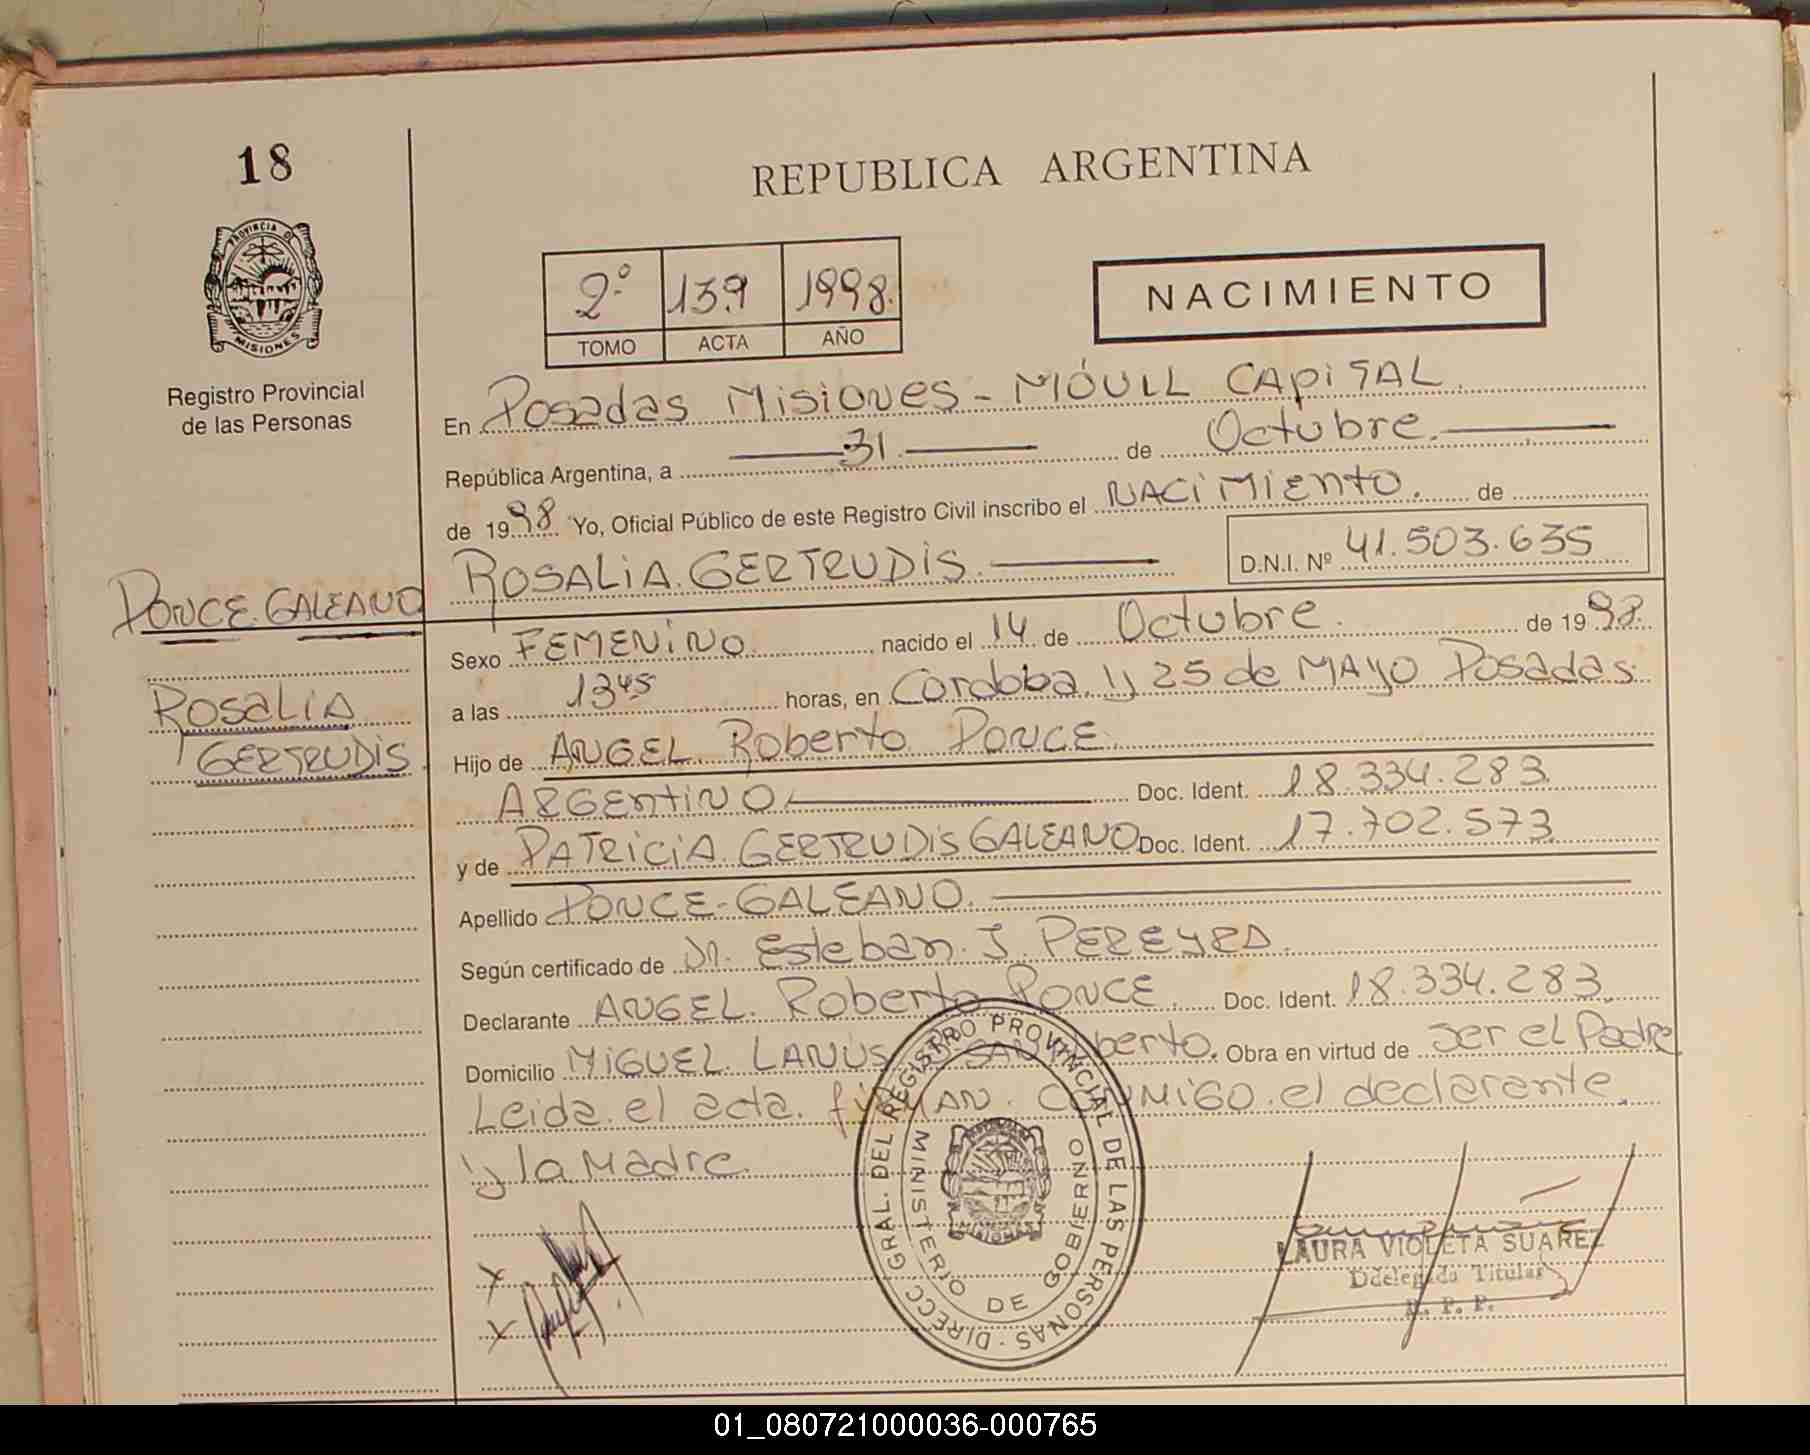 18
REPUBLICA ARGENTINA
PROVINCIA DE
MISIONES
Registro Provincial
de las Personas
2º 139 1998.
TOMO ACTA AÑO
NACIMIENTO
En Posadas Misiones - MÓVIL CAPITAL
República Argentina, a 31 de Octubre.
de 1998 Yo, Oficial Público de este Registro Civil inscribo el NACIMIENTO. de
ROSALIA GERTRUDIS. D.N.I. Nº 41.503.635
PONCE GALEANO
Rosalia
GERTRUDIS.
Sexo FEMENINO nacido el 14 de Octubre. de 1998.
a las 13 45 horas, en Cordoba y 25 de MAYO Posadas.
Hijo de ANGEL Roberto PONCE
ARGENTINO Doc. Ident. 18.334.283.
y de PATRICIA GERTRUDIS GALEANO Doc. Ident. 17.702.573
Apellido PONCE-GALEANO.
Según certificado de Dr. Esteban J. PEREYRA.
Declarante ANGEL Roberto PONCE. Doc. Ident. 18.334.283.
Domicilio MIGUEL LANUS berto. Obra en virtud de ser el Padre
Leida el acta firman CONMIGO el declarante.
y la Madre.
DIRECC GRAL. DEL REGISTRO PROVINCIAL DE LAS PERSONAS
MINISTERIO DE GOBIERNO
LAURA VIOLETA SUAREZ
Ddelegada Titular
R. P. P.
01_080721000036-000765